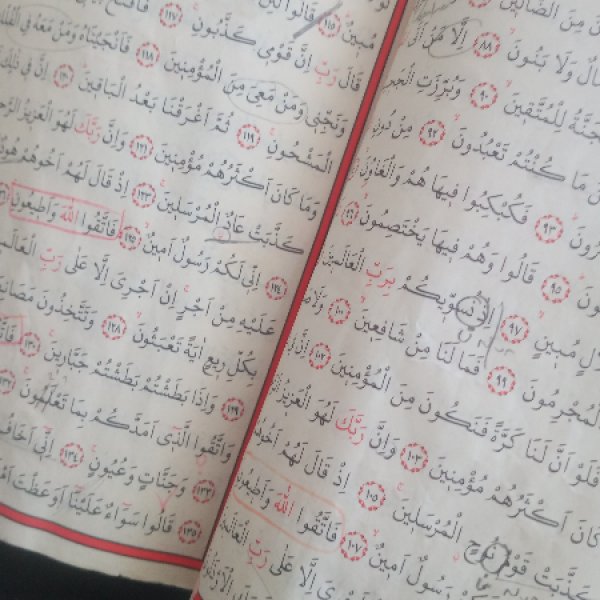 مِنَ الضَّالّ۪ينَ
وَلَا بَنُونَ ﴿٨٨﴾ اِلَّا مَنْ اَتَى
لِلْمُتَّق۪ينَ ﴿٩٠﴾ وَبُرِّزَتِ
مَا كُنْتُمْ تَعْبُدُونَ ﴿٩٢﴾ مِنْ دُونِ
﴿٩٣﴾ فَكُبْكِبُوا ف۪يهَا هُمْ وَالْغَاوُ۫نَ
﴿٩٥﴾ قَالُوا وَهُمْ ف۪يهَا يَخْتَصِمُونَ ﴿٩٦﴾
مُب۪ينٍ ﴿٩٧﴾ اِذْ نُسَوّ۪يكُمْ بِرَبِّ الْعَالَم۪ينَ
الْمُجْرِمُونَ ﴿٩٩﴾ فَمَا لَنَا مِنْ شَافِع۪ينَ ﴿١٠٠﴾ وَلَا
فَلَوْ اَنَّ لَنَا كَرَّةً فَنَكُونَ مِنَ الْمُؤْمِن۪ينَ ﴿١٠٢﴾ اِنَّ
كَانَ اَكْثَرُهُمْ مُؤْمِن۪ينَ ﴿١٠٣﴾ وَاِنَّ رَبَّكَ لَهُوَ الْعَز۪يزُ
كَذَّبَتْ قَوْمُ نُوحٍ الْمُرْسَل۪ينَ ﴿١٠٥﴾ اِذْ قَالَ لَهُمْ اَخُوهُمْ
رَسُولٌ اَم۪ينٌ ﴿١٠٧﴾ فَاتَّقُوا اللّٰهَ وَاَط۪يعُونِ
اِلَّا عَلٰى رَبِّ الْعَالَم۪ينَ
مُب۪ينٌ ﴿١١٥﴾ قَالُوا لَئِنْ
قَالَ رَبِّ اِنَّ قَوْم۪ي كَذَّبُونِ ﴿١١٧﴾ فَافْتَحْ
وَنَجِّن۪ي وَمَنْ مَعِيَ مِنَ الْمُؤْمِن۪ينَ ﴿١١٨﴾ فَاَنْجَيْنَاهُ وَمَنْ مَعَهُ فِي الْفُلْكِ
الْمَشْحُونِ ﴿١١٩﴾ ثُمَّ اَغْرَقْنَا بَعْدُ الْبَاق۪ينَ ﴿١٢٠﴾ اِنَّ ف۪ي ذٰلِكَ
وَمَا كَانَ اَكْثَرُهُمْ مُؤْمِن۪ينَ ﴿١٢١﴾ وَاِنَّ رَبَّكَ لَهُوَ الْعَز۪يزُ
كَذَّبَتْ عَادٌ الْمُرْسَل۪ينَ ﴿١٢٣﴾ اِذْ قَالَ لَهُمْ اَخُوهُمْ هُودٌ
﴿١٢٤﴾ اِنّ۪ي لَكُمْ رَسُولٌ اَم۪ينٌ ﴿١٢٥﴾ فَاتَّقُوا اللّٰهَ وَاَط۪يعُونِ
عَلَيْهِ مِنْ اَجْرٍ اِنْ اَجْرِيَ اِلَّا عَلٰى رَبِّ الْعَالَم۪ينَ
بِكُلِّ ر۪يعٍ اٰيَةً تَعْبَثُونَ ﴿١٢٨﴾ وَتَتَّخِذُونَ مَصَانِعَ
﴿١٢٩﴾ وَاِذَا بَطَشْتُمْ بَطَشْتُمْ جَبَّار۪ينَ ﴿١٣٠﴾
وَاتَّقُوا الَّذ۪ٓي اَمَدَّكُمْ بِمَا تَعْلَمُونَ ﴿١٣٢﴾
﴿١٣٣﴾ وَجَنَّاتٍ وَعُيُونٍ ﴿١٣٤﴾ اِنّ۪ٓي اَخَافُ
﴿١٣٥﴾ قَالُوا سَوَٓاءٌ عَلَيْنَٓا اَوَعَظْتَ اَمْ